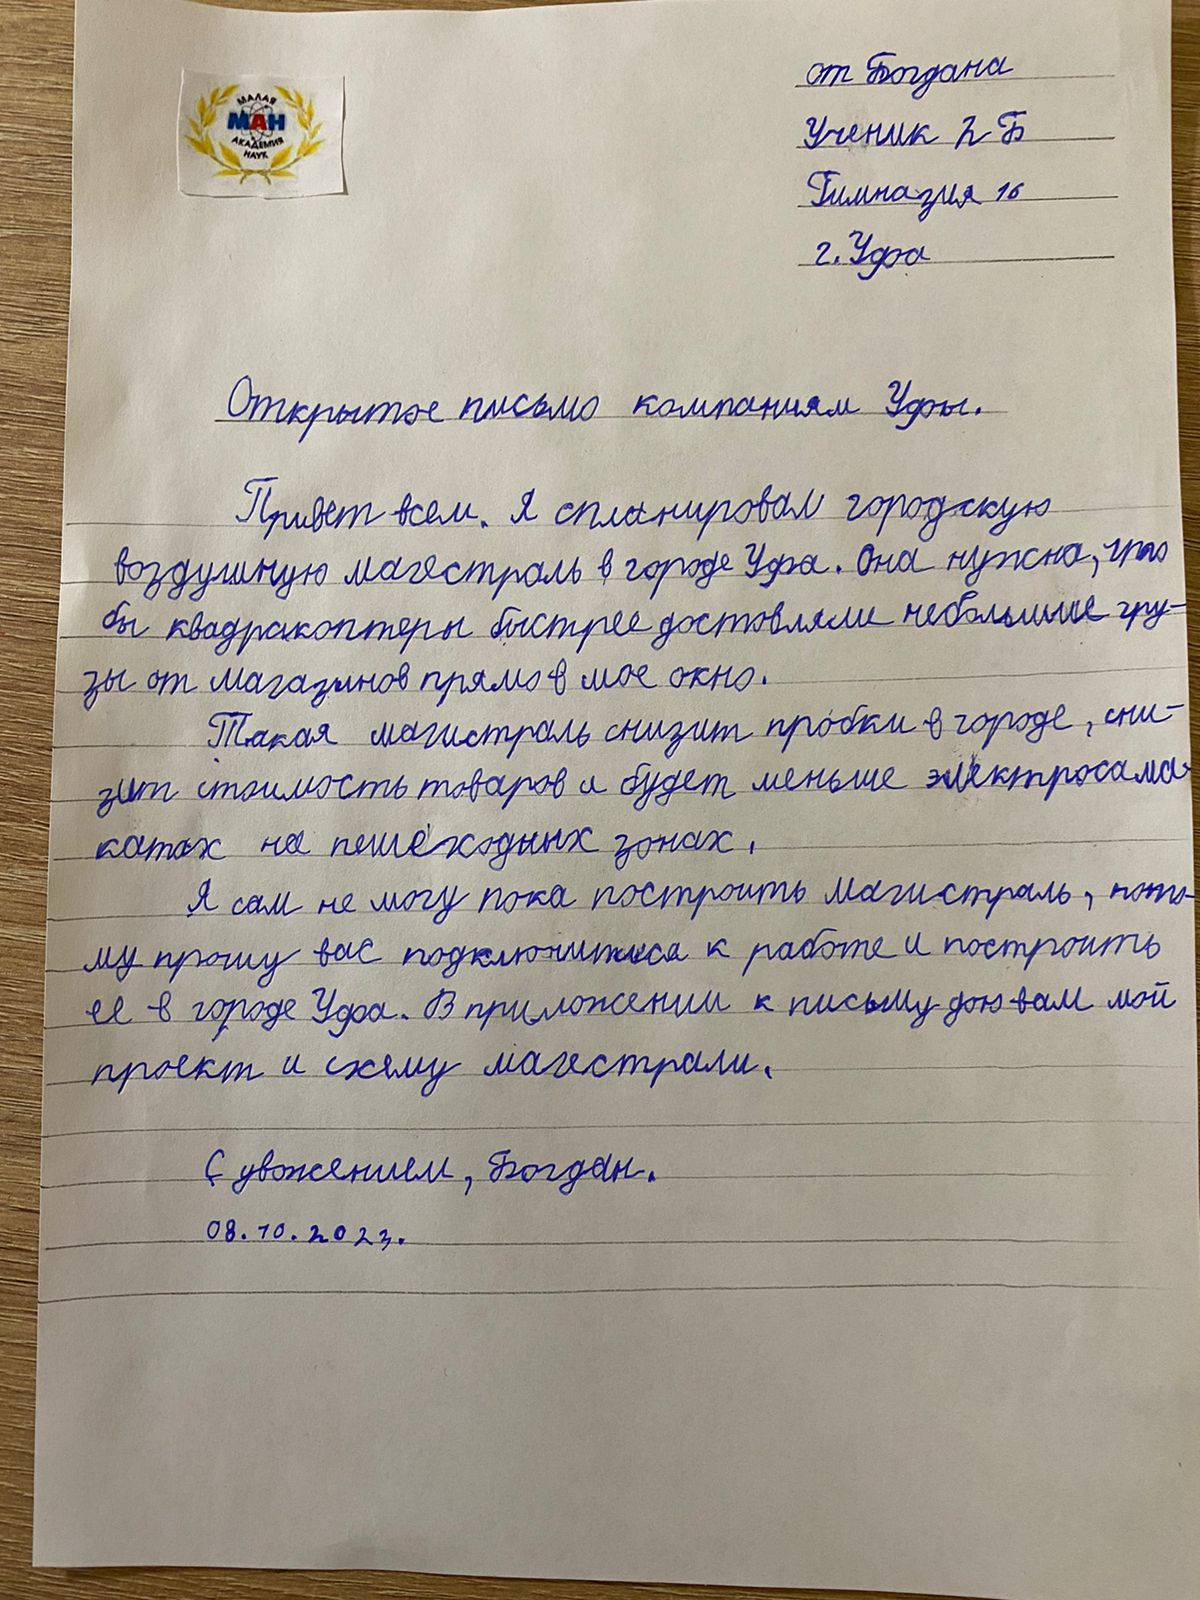 МАЛАЯ
МАН
АКАДЕМИЯ
НАУК
от Богдана
Ученик 2 Б
Гимназия 16
г. Уфа
Открытое письмо компаниям Уфы.
Привет всем. Я спланировал городскую
воздушную магестраль в городе Уфа. Она нужна, что
бы квадракоптеры быстрее достовляли небольшие гру-
зы от магазинов прямо в мое окно.
Такая магистраль снизит пробки в городе, сни-
зит стоимость товаров и будет меньше электросама-
катах на пешеходных зонах.
Я сам не могу пока построить магистраль, пото-
му прошу вас подключиться к работе и построить
ее в городе Уфа. В приложении к письму даю вам мой
проект и схему магестрали.
С увожением, Богдан.
08.10.2023.